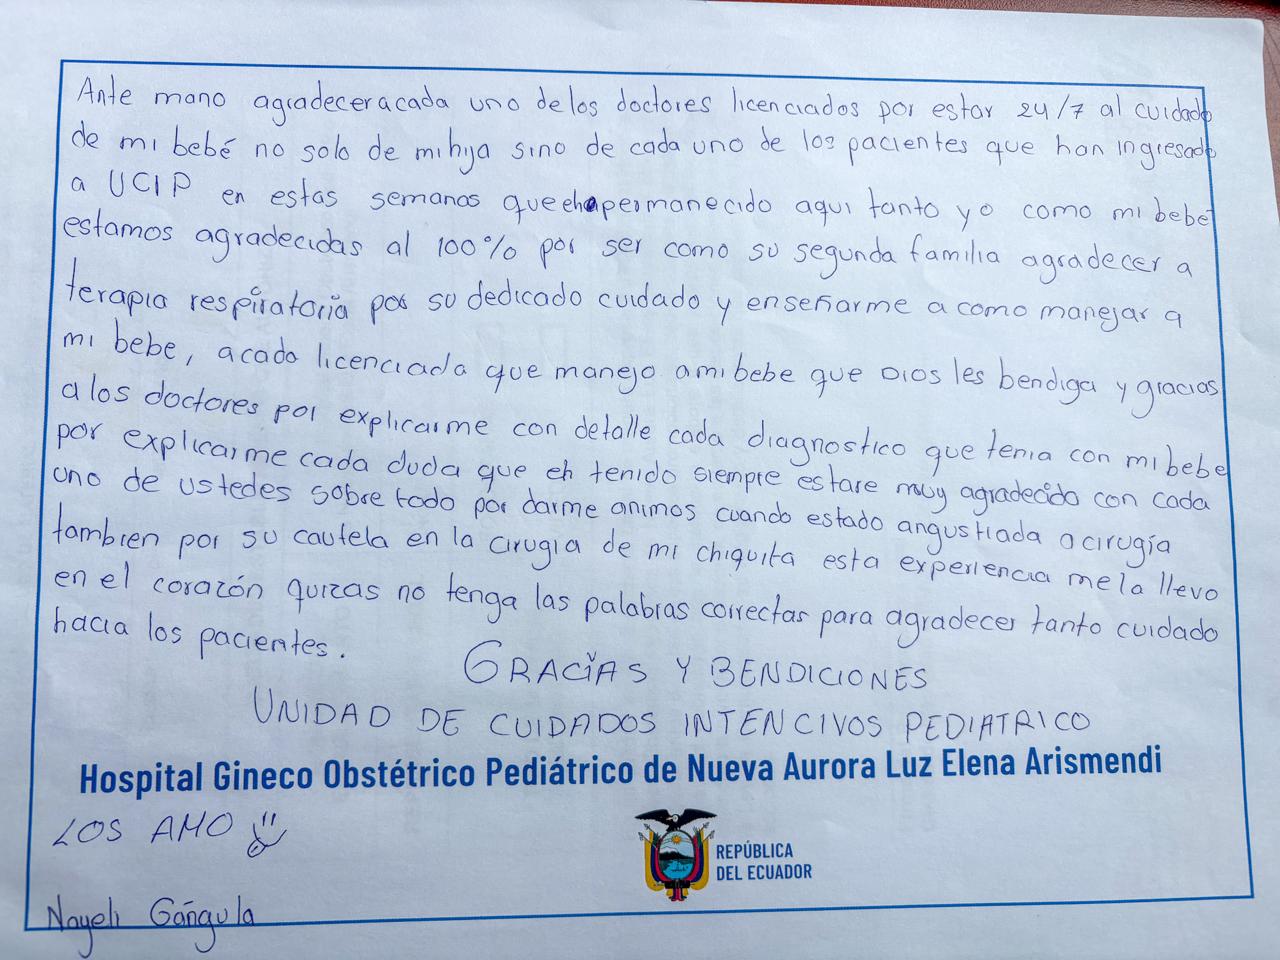 Ante mano agradecer acada uno delos doctores licenciados por estar 24/7 al cuidado
de mi bebé no solo de mi hija sino de cada uno de los pacientes que han ingresado
a UCIP en estas semanas que eh permanecido aqui tanto yo como mi bebé
estamos agradecidas al 100% por ser como su segunda familia agradecer a
terapia respiratoria por su dedicado cuidado y enseñarme a como manejar a
mi bebe, acada licenciada que manejo ami bebe que Dios les bendiga y gracias
a los doctores por explicarme con detalle cada diagnostico que tenia con mi bebe
por explicarme cada duda que eh tenido siempre estare muy agradecida con cada
uno de ustedes sobre todo por darme animos cuando estado angustiada a cirugía
tambien por su cautela en la cirugia de mi chiquita esta experiencia me la llevo
en el corazón quizas no tenga las palabras correctas para agradecer tanto cuidado
hacia los pacientes.
GRACIAS Y BENDICIONES
UNIDAD DE CUIDADOS INTENCIVOS PEDIATRICO
Hospital Gineco Obstétrico Pediátrico de Nueva Aurora Luz Elena Arismendi
LOS AMO
REPÚBLICA
DEL ECUADOR
Nayeli Gángula